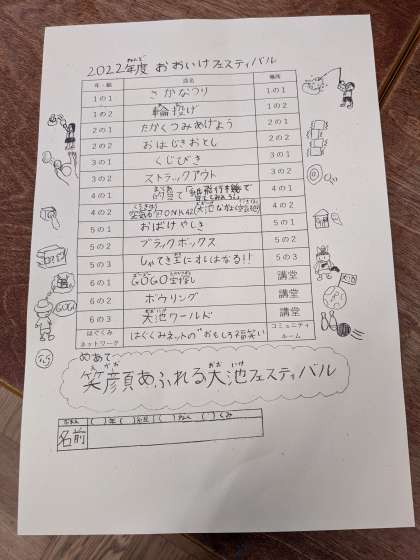 2022年度 おおいけフェスティバル
年・組 店名 場所
1の1 さかなつり 1の1
1の2 輪投げ 1の2
2の1 たかくつみあげよう 2の1
2の2 おはじきおとし 2の2
3の1 くじびき 3の1
3の2 ストラックアウト 3の2
4の1 的当て 4の1
4の2 空気砲 4の2
5の1 おばけやしき 5の1
5の2 ブラックボックス 5の2
5の3 しゃてき王におれはなる!! 5の3
6の1 GOGO宝探し 講堂
6の2 ボウリング 講堂
6の3 大池ワールド 講堂
はぐくみネットワーク はぐくみネットの"おもしろ福笑い コミュニティルーム
めあて
笑顔あふれる大池フェスティバル
( )年( )組( )
名前